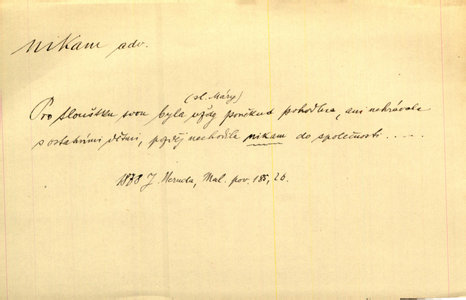 nikam adv.
(sl. Máry)
Pro tloušťku svou byla vždy poněkud pohodlna, ani nehrávala
s ostatními dětmi, později nechodila nikam do společnosti .....
1878 J. Neruda, Mal. pov. 185, 26.